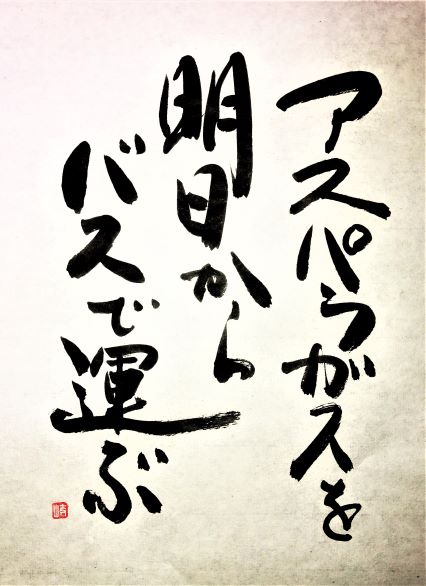 アスパラガスを
明日から
バスで運ぶ